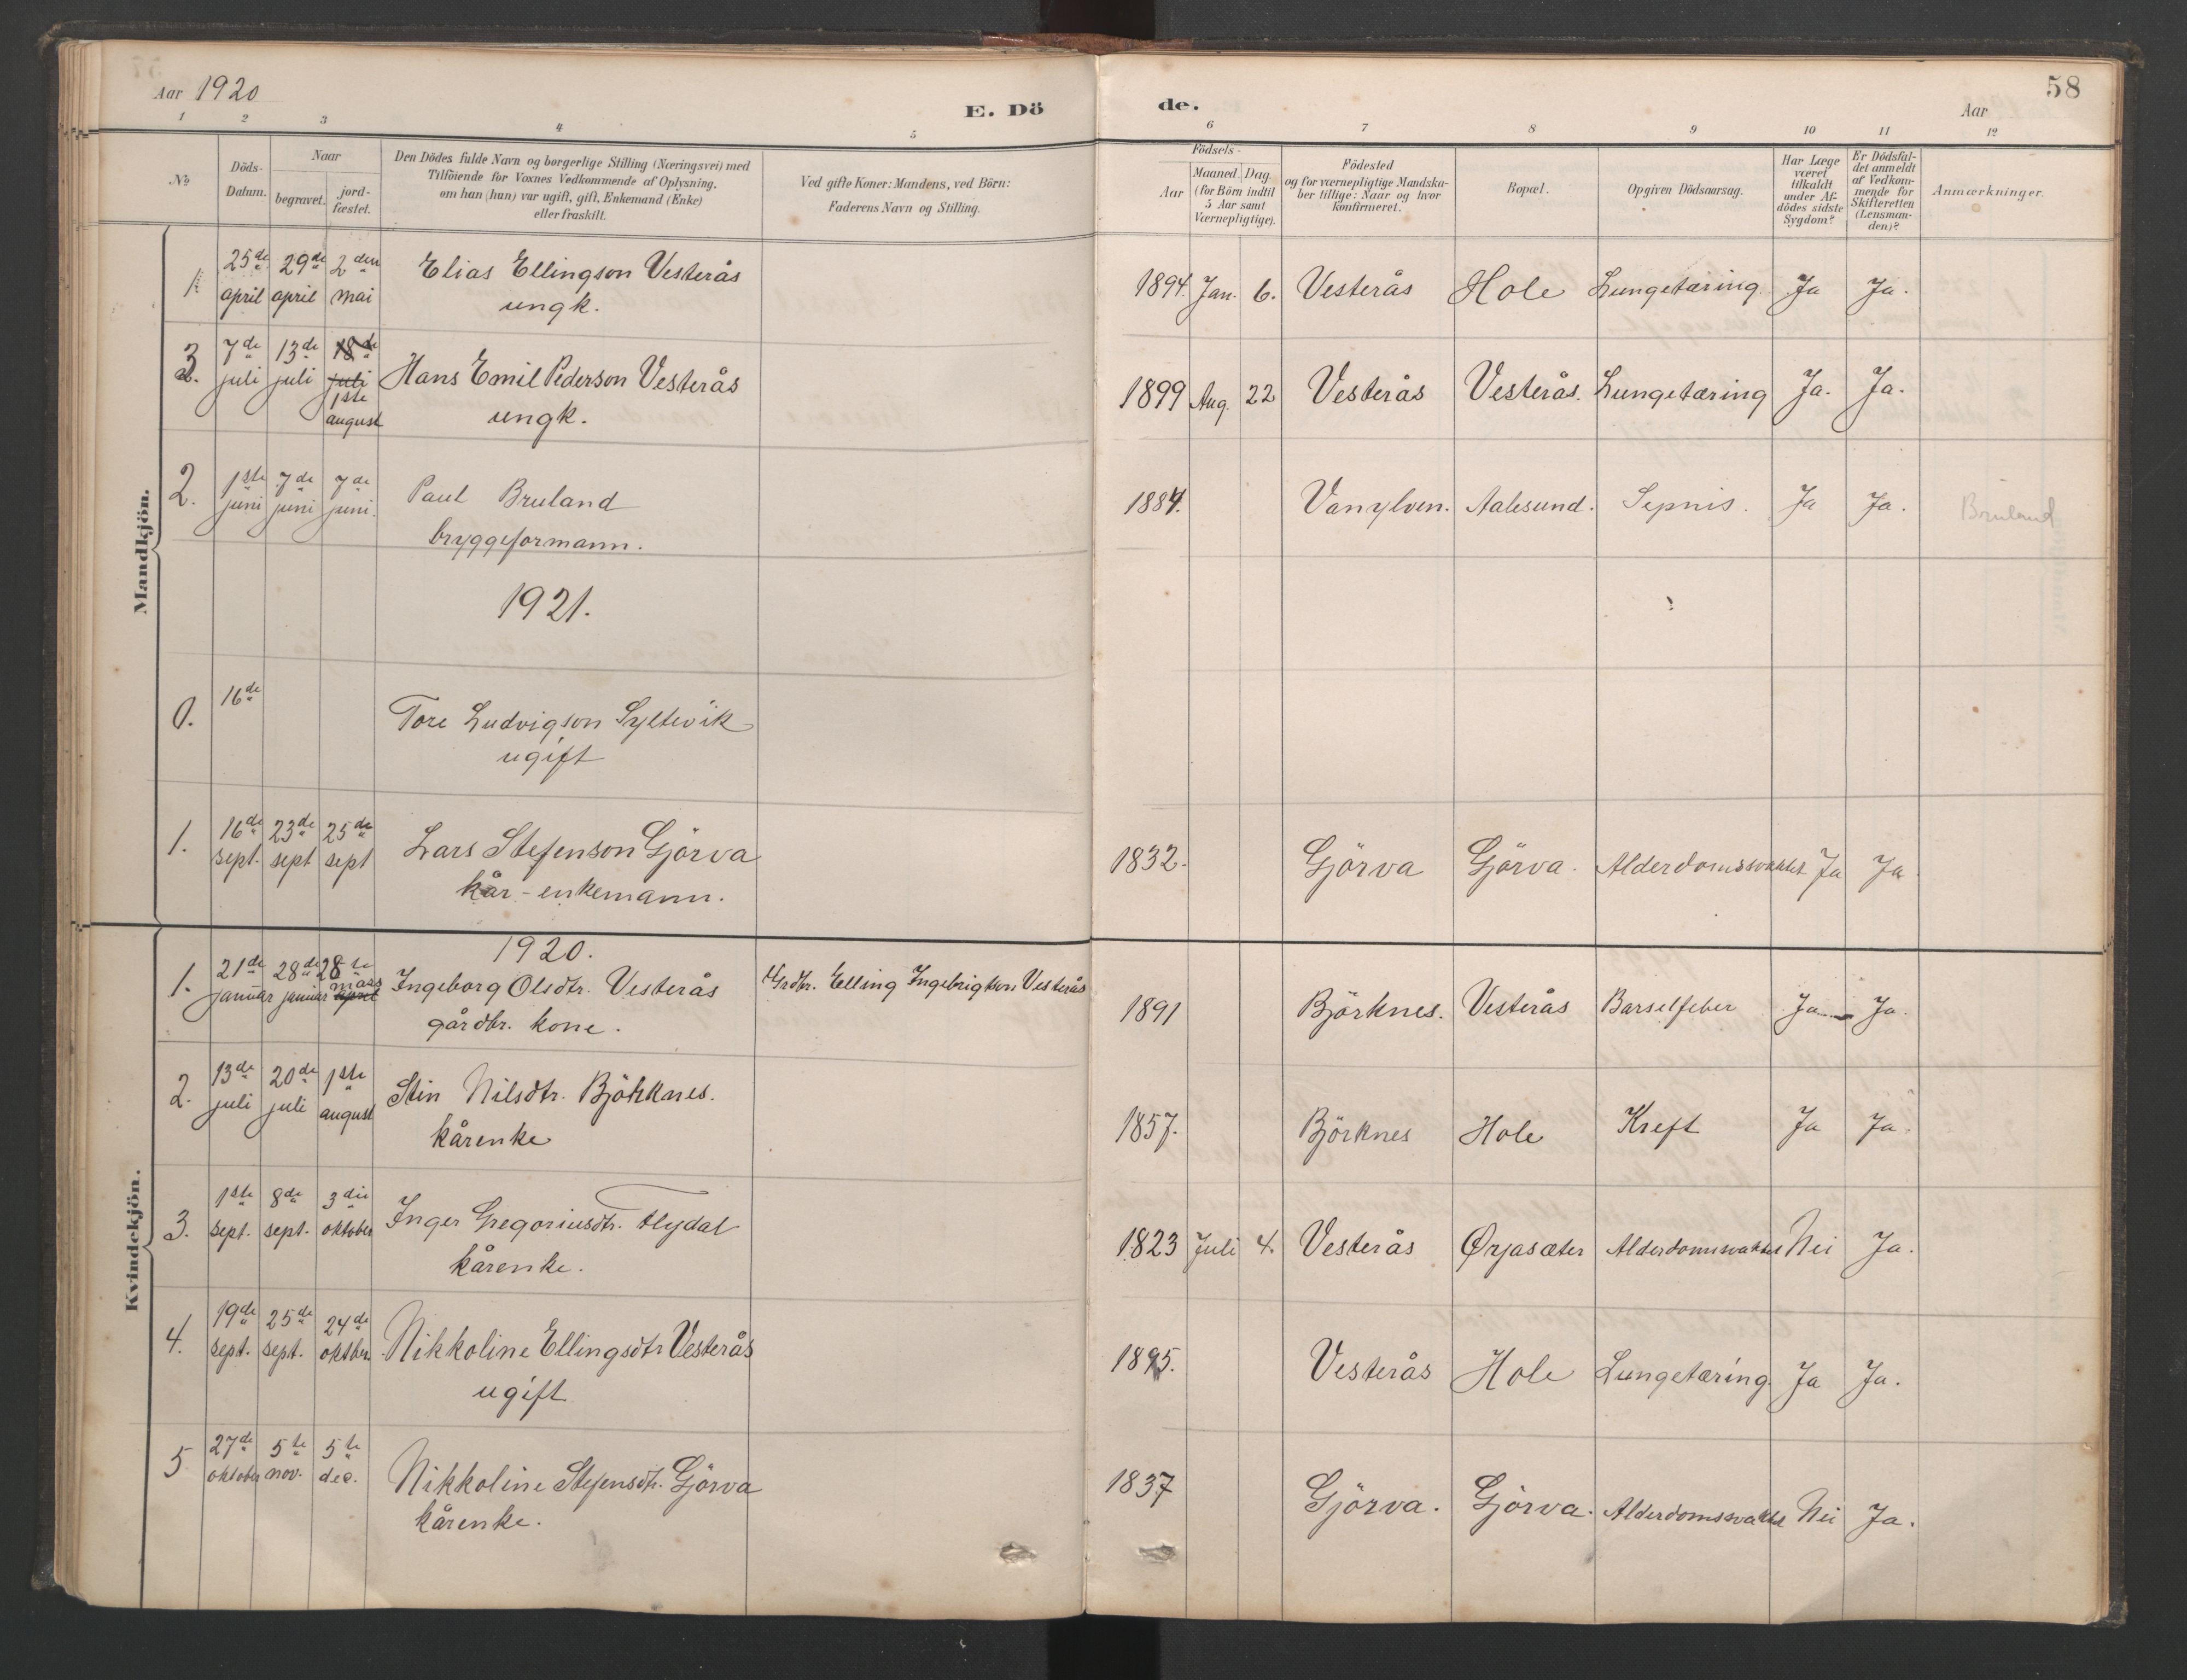 58
Aar 1920
E. Dö
de.
Aar
1 2 3 4 5 6 7 8 9 10 11 12
No
Döds-
Datum.
Naar
begravet.
jord-
fæstet.
Den Dödes fulde Navn og borgerlige Stilling (Næringsvei) med
Tilföiende for Voxnes Vedkommende af Oplysning,
om han (hun) var ugift, gift, Enkemand (Enke)
eller fraskilt.
Ved gifte Koner: Mandens, ved Börn:
Faderens Navn og Stilling.
Födsels-
Aar
Maaned. Dag.
(for Börn indtil
5 Aar samt
Værnepligtige).
Födested
og for værnepligtige Mandska-
ber tillige: Naar og hvor
konfirmeret.
Bopæl.
Opgiven Dödsaarsag.
Har Læge
været
tilkaldt
under Af-
dödes sidste
Sygdom?
Er Dödsfal-
det anmeldt
af Vedkom-
mende for
Skifteretten
(Lensman-
den)?
Anmærkninger.
Mandkjön.
1. 25de 29de 2den Elias Ellingson Vesterås
april april mai ungk.
1894. Jan. 6. Vesterås Hole Lungetæring. Ja Ja.
3. 7de 13de 18de
juli juli juli Hans Emil Pederson Vesterås
1ste
august ungk.
1899 Aug. 22 Vesterås Vesterås. Lungetæring Ja. Ja.
2. 1ste 7de 7de Paul Bruland
juni juni juni. bryggeformann.
1884. Vanylven. Aalesund. Sepnis. Ja Ja. Bruland
1921.
0. 16de
Tore Ludvigson Syltevik
ugift
1. 16de 23de 25de Lars Stefenson Gjörva
sept. sept sept kår-enkemann.
1832. Gjörva Gjörva. Alderdomssvakhet Ja Ja
Kvindekjön.
1920.
1. 21de 28de 28de
januar januar april mars Ingeborg Olsdtr. Vesterås Grdbr. Elling Ingebrigtson Vesterås
gårdbr. kone.
1891 Björknes. Vesterås Barselfeber Ja Ja.
2. 13de 20de 1ste Stin Nilsdtr. Björknes.
juli juli august kårenke
1857. Björknes Hole Kreft Ja Ja.
3. 1ste 8de 3die Inger Gregoriusdtr. Flydal
sept. sept. oktober kårenke.
1823 Juli 4. Vesterås Ørjasæter Alderdomsvakhet Nei Ja.
4. 19de 25de 24de Nikkoline Ellingsdtr Vesterås
sept. sept. oktber. ugift
1895. Vesterås Hole Lungetæring. Ja Ja.
5 27de 5te 5te Nikkoline Stefensdtr. Gjörva
oktober nov. dec. kårenke.
1837 Gjörva. Gjörva. Alderdomssvakhet Nei Ja.